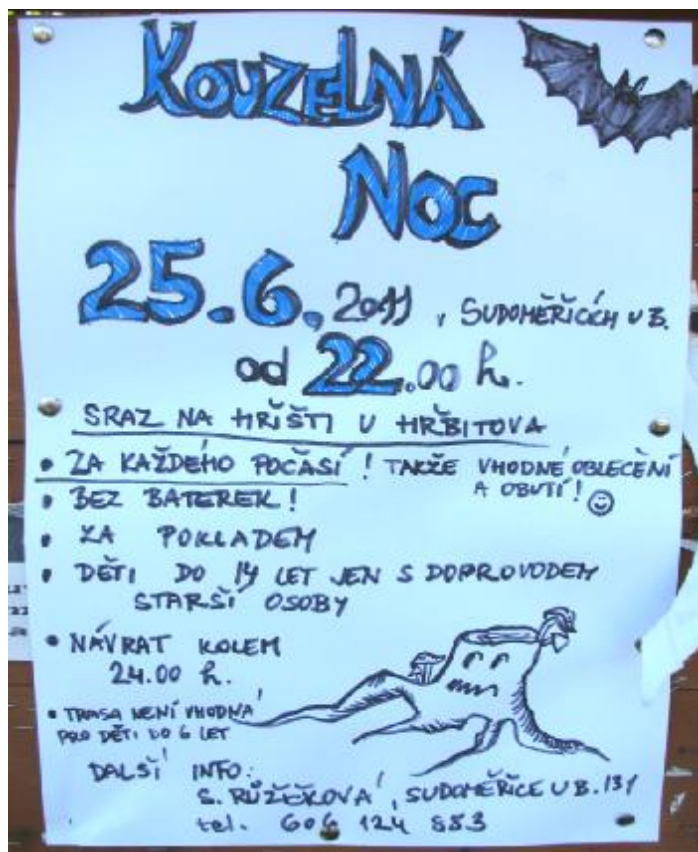 KOUZELNÁ
NOC
25.6. 2011, SUDOMĚŘICÍCH U B.
od 22.00 h.
SRAZ NA HŘIŠTI U HŘBITOVA
• ZA KAŽDÉHO POČASÍ! TAKŽE VHODNÉ OBLEČENÍ
A OBUTÍ! ☺
• BEZ BATEREK!
• ZA POKLADEM
• DĚTI DO 14 LET JEN S DOPROVODEM
STARŠÍ OSOBY
• NÁVRAT KOLEM
24.00 h.
• TRASA NENÍ VHODNÁ
PRO DĚTI DO 6 LET
DALŠÍ INFO:
S. RŮŽEČKOVÁ, SUDOMĚŘICE U B. 131
tel. 606 124 883